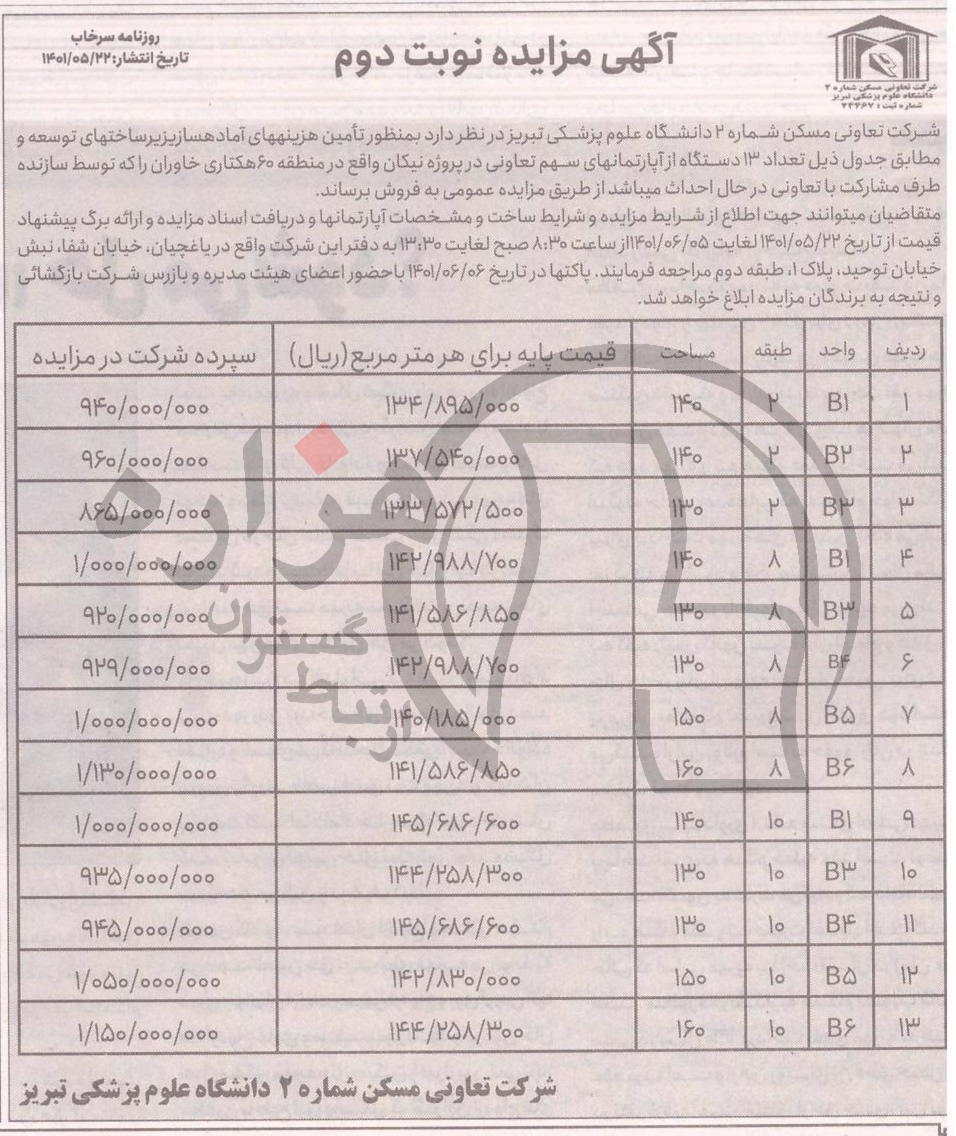 روزنامه سرخاب
تاریخ انتشار:۱۴۰۱/۰۵/۲۲
آگهی مزایده نوبت دوم
شرکت تعاونی مسکن شماره ۲
دانشگاه علوم پزشکی تبریز
شماره ثبت : ۲۴۲۶۷
شرکت تعاونی مسکن شماره ۲ دانشگاه علوم پزشکی تبریز در نظر دارد بمنظور تأمین هزینههای آمادهسازیزیرساختهای توسعه و
مطابق جدول ذیل تعداد ۱۳ دستگاه از آپارتمانهای سهم تعاونی در پروژه نیکان واقع در منطقه ۶۰هکتاری خاوران را که توسط سازنده
طرف مشارکت با تعاونی در حال احداث میباشد از طریق مزایده عمومی به فروش برساند.
متقاضیان میتوانند جهت اطلاع از شرایط مزایده و شرایط ساخت و مشخصات آپارتمانها و دریافت اسناد مزایده و ارائه برگ پیشنهاد
قیمت از تاریخ ۱۴۰۱/۰۵/۲۲ لغایت ۱۴۰۱/۰۶/۰۵از ساعت ۸:۳۰ صبح لغایت ۱۳:۳۰ به دفتر این شرکت واقع در باغچیان، خیابان شفا، نبش
خیابان توحید، پلاک ۱، طبقه دوم مراجعه فرمایند. پاکتها در تاریخ ۱۴۰۱/۰۶/۰۶ با حضور اعضای هیئت مدیره و بازرس شرکت بازگشائی
و نتیجه به برندگان مزایده ابلاغ خواهد شد.
ردیف واحد طبقه مساحت قیمت پایه برای هر متر مربع(ریال) سپرده شرکت در مزایده
۱ B۱ ۲ ۱۴۰ ۱۳۴/۸۹۵/۰۰۰ ۹۴۰/۰۰۰/۰۰۰
۲ B۲ ۲ ۱۴۰ ۱۳۷/۵۴۰/۰۰۰ ۹۶۰/۰۰۰/۰۰۰
۳ B۳ ۲ ۱۳۰ ۱۳۳/۵۷۲/۵۰۰ ۸۶۵/۰۰۰/۰۰۰
۴ B۱ ۸ ۱۴۰ ۱۴۲/۹۸۸/۷۰۰ ۱/۰۰۰/۰۰۰/۰۰۰
۵ B۳ ۸ ۱۳۰ ۱۴۱/۵۸۶/۸۵۰ ۹۲۰/۰۰۰/۰۰۰
۶ B۴ ۸ ۱۳۰ ۱۴۲/۹۸۸/۷۰۰ ۹۲۹/۰۰۰/۰۰۰
۷ B۵ ۸ ۱۵۰ ۱۴۰/۱۸۵/۰۰۰ ۱/۰۰۰/۰۰۰/۰۰۰
۸ B۶ ۸ ۱۶۰ ۱۴۱/۵۸۶/۸۵۰ ۱/۱۳۰/۰۰۰/۰۰۰
۹ B۱ ۱۰ ۱۴۰ ۱۴۵/۶۸۶/۶۰۰ ۱/۰۰۰/۰۰۰/۰۰۰
۱۰ B۳ ۱۰ ۱۳۰ ۱۴۴/۲۵۸/۳۰۰ ۹۳۵/۰۰۰/۰۰۰
۱۱ B۴ ۱۰ ۱۳۰ ۱۴۵/۶۸۶/۶۰۰ ۹۴۵/۰۰۰/۰۰۰
۱۲ B۵ ۱۰ ۱۵۰ ۱۴۲/۸۳۰/۰۰۰ ۱/۰۵۰/۰۰۰/۰۰۰
۱۳ B۶ ۱۰ ۱۶۰ ۱۴۴/۲۵۸/۳۰۰ ۱/۱۵۰/۰۰۰/۰۰۰
هزاره
گستران
ارتباط
شرکت تعاونی مسکن شماره ۲ دانشگاه علوم پزشکی تبریز